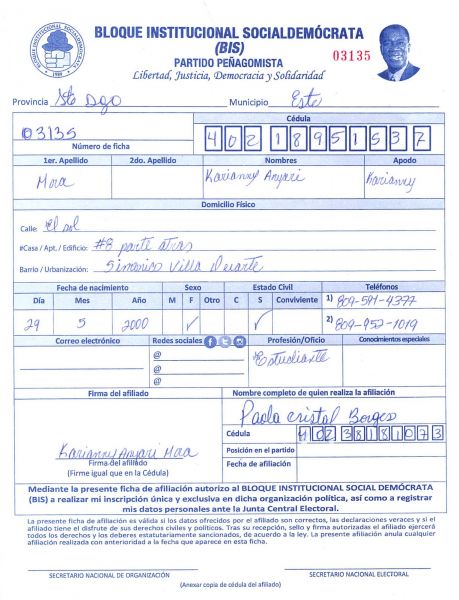 BLOQUE INSTITUCIONAL SOCIALDEMÓCRATA
(BIS)
PARTIDO PEÑAGOMISTA
Libertad, Justicia, Democracia y Solidaridad
03135
BLOQUE INSTITUCIONAL SOCIALDEMOCRATA
1989
Provincia Sto Dgo Municipio Este
03135
Número de ficha
Cédula
40218951537
1er. Apellido 2do. Apellido Nombres Apodo
Mora Karianny Anyari Karianny
Domicilio Físico
Calle: El sol
#Casa / Apt. / Edificio: #8 parte atras
Barrio / Urbanización: Simonico Villa Duarte
Fecha de nacimiento Sexo Estado Civil Teléfonos
Día Mes Año M F Otro C S Conviviente
1) 809-591-4377
29 5 2000 ✓ ✓
2) 809-952-1019
Correo electrónico Redes sociales Profesión/Oficio Conocimientos especiales
@ Estudiante
@
@
Firma del afiliado Nombre completo de quien realiza la afiliación
Paola Cristal Borges
Cédula 40238181073
Karianny Anyari Mora
Firma del afiliado
(Firme igual que en la Cédula)
Posición en el partido
Fecha de afiliación
Mediante la presente ficha de afiliación autorizo al BLOQUE INSTITUCIONAL SOCIAL DEMÓCRATA
(BIS) a realizar mi inscripción única y exclusiva en dicha organización política, así como a registrar
mis datos personales ante la Junta Central Electoral.
La presente ficha de afiliación es válida si los datos ofrecidos por el afiliado son correctos, las declaraciones veraces y si el
afiliado tiene el disfrute de sus derechos civiles y políticos. Tras su recepción, sello y firma autorizadas el afiliado ejercerá
todos los derechos y los deberes estatutariamente sancionados, de acuerdo a la ley. La presente afiliación anula cualquier
afiliación realizada con anterioridad a la fecha que aparece en esta ficha.
SECRETARIO NACIONAL DE ORGANIZACIÓN SECRETARIO NACIONAL ELECTORAL
(Anexar copia de cédula del afiliado)